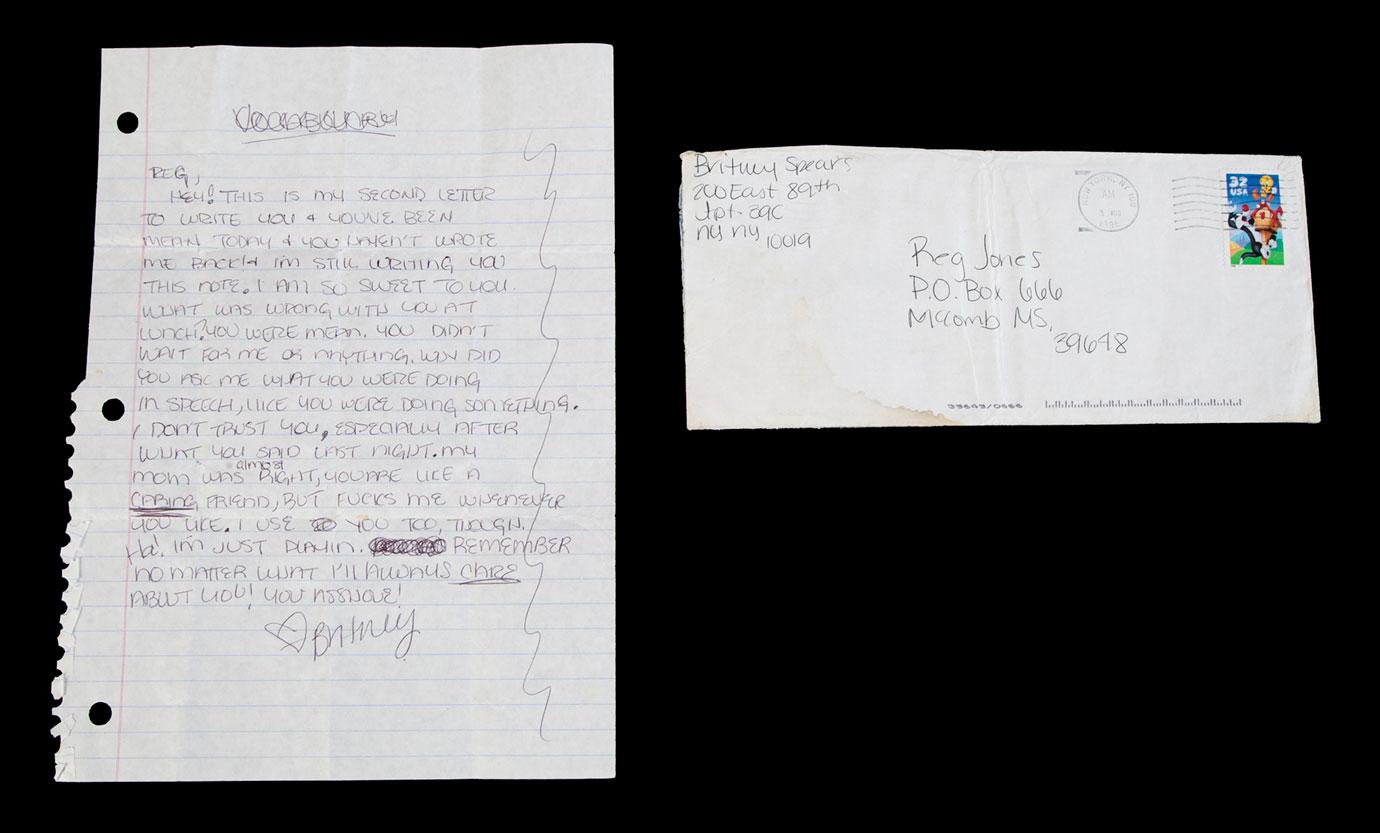 VOCABULARY
REG,
HEY! THIS IS MY SECOND LETTER
TO WRITE YOU & YOU'VE BEEN
MEAN TODAY & YOU HAVEN'T WROTE
ME BACK & I'M STILL WRITING YOU
THIS NOTE. I AM SO SWEET TO YOU.
WHAT WAS WRONG WITH YOU AT
LUNCH? YOU WERE MEAN. YOU DIDN'T
WAIT FOR ME OR ANYTHING. WHY DID
YOU ASK ME WHAT YOU WERE DOING
IN SPEECH, LIKE YOU WERE DOING SOMETHING.
I DON'T TRUST YOU, ESPECIALLY AFTER
WHAT YOU SAID LAST NIGHT. MY
MOM WAS almost RIGHT, YOU ARE LIKE A
CARING FRIEND, BUT FUCKS ME WHENEVER
YOU LIKE. I USE YOU TOO, THOUGH.
Ha! I'M JUST PLAYIN. REMEMBER
NO MATTER WHAT I'll ALWAYS CARE
ABOUT YOU! YOU ASSHOLE!
Britney
Britney Spears
200 East 89th
Apt 39C
NY NY 10019
NEW YORK, NY 100
AM
32
USA
Reg Jones
P.O. Box 666
McComb MS,
39648
39649/0666